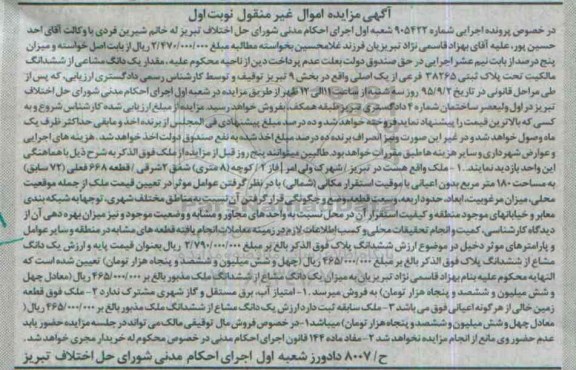 آگهی مزایده اموال غیر منقول نوبت اول
در خصوص پرونده اجرایی شماره ۹۰۵۴۲۲ شعبه اول اجرای احکام مدنی شورای حل اختلاف تبریز له خانم شیرین فردی با وکالت آقای احد
حسین پور، علیه آقای بهزاد قاسمی نژاد تبریزیان فرزند غلامحسین بخواسته مطالبه مبلغ ۲/۴۷۰/۰۰۰/۰۰۰ ریال از بابت اصل خواسته و میزان
پنج درصد از بابت نیم عشر اجرایی در حق صندوق دولت بعلت عدم پرداخت دین از ناحیه محکوم علیه، مقدار یک دانگ مشاعی از ششدانگ
مالکیت تحت پلاک ثبتی ۳۸۲۶۵ فرعی از یک اصلی واقع در بخش ۹ تبریز توقیف و توسط کارشناس رسمی دادگستری ارزیابی، که پس از
طی مراحل قانونی در تاریخ ۹۵/۹/۲ روز سه شنبه از ساعت ۱۱ الی ۱۲ ظهر از طریق مزایده در شعبه اول اجرای احکام مدنی شورای حل اختلاف
تبریز در اول ولیعصر ساختمان شماره ۴ دادگستری تبریز طبقه همکف بفروش خواهد رسید. مزایده از مبلغ ارزیابی شده کارشناس شروع و به
کسی که بالاترین قیمت را پیشنهاد نماید فروخته خواهد شد و ده درصد مبلغ پیشنهادی فی المجلس از برنده اخذ و مابقی حداکثر ظرف یک
ماه وصول خواهد شد و در غیر این صورت وصرف انصراف برنده ده درصد مبلغ اخذ شده به نفع صندوق دولت اخذ خواهد شد. هزینه های اجرایی
و عوارض شهرداری و سایر هزینه ها طبق مقررات خواهد بود. طالبین میتوانند پنج روز قبل از مزایده از ملک فوق الذکر به شرح ذیل با هماهنگی
این واحد بازدید نمایند. ۱- ملک واقع هست در تبریز / شهرک ولی امر / فاز ۲ / کوچه (۸ متری) شفق ۲ شرقی / قطعه ۶۶۸ فعلی (۷۲ سابق)
به مساحت ۱۸۰ متر مربع بدون اعیانی با موقیت استقرار مکانی (شمالی) با در نظر گرفتن عوامل موثر در تعیین قیمت ملک از جمله موقعیت
محلی، میزان مرغوبیت، ابعاد، حدود اربعه، وسعت قطعه، وضع و چگونگی قرار گرفتن آن نسبت به مناطق مختلف شهری، توجها به شبکه بندی
معابر و خیابانهای موجود منطقه و کیفیت استقرار آن در محل نسبت به واحد های مجاور و مشابه و وضعیت موجود و نیز میزان بهره دهی آن از
دیدگاه کارشناسی، کمیت و انجام تحقیقات محلی و کسب اطلاعات لازم در زمینه معاملات انجام یافته قطعه های مشابه در منطقه و سایر عوامل
و پارامترهای موثر دخیل در موضوع ارزش ششدانگ پلاک فوق الذکر بالغ بر مبلغ ۲/۷۹۰/۰۰۰/۰۰۰ ریال بعنوان قیمت پایه و ارزش یک دانگ
مشاع از ششدانگ پلاک فوق الذکر بالغ بر مبلغ ۴۶۵/۰۰۰/۰۰۰ ریال (چهل و شش میلیون و ششصد و پنجاه هزار تومان) تعیین شده است که
النهایه محکوم علیه بنام بهزاد قاسمی نژاد تبریزیان به میزان یک دانگ مشاع از ششدانگ ملک مذبور بالغ بر ۴۶۵/۰۰۰/۰۰۰ ریال (معادل چهل
و شش میلیون و ششصد و پنجاه هزار تومان) به فروش میرسد. ۱- امتیاز آب، برق مستقل و گاز شهری مشترک ندارد ۲- ملک فوق قطعه
زمین خالی از هر گونه اعیانی فوق می باشد ۳- ملک سابقه ثبت دارد ارزش یک دانگ مشاع از ششدانگ ملک مذبور بالغ بر ۴۶۵/۰۰۰/۰۰۰ ریال (
معادل چهل و شش میلیون و ششصد و پنجاه هزار تومان) میباشد ۱- در خصوص فروش مال توقیفی مالک می تواند در جلسه مزایده حضور یابد
عدم حضور وی مانع از انجام مزایده نخواهد شد ۲- مفاد ماده ۱۴۴ قانون اجرای احکام مدنی در خصوص محکوم له خریدار مجری خواهد شد.
ح/ ۸۰۰۷ دادورز شعبه اول اجرای احکام مدنی شورای حل اختلاف تبریز